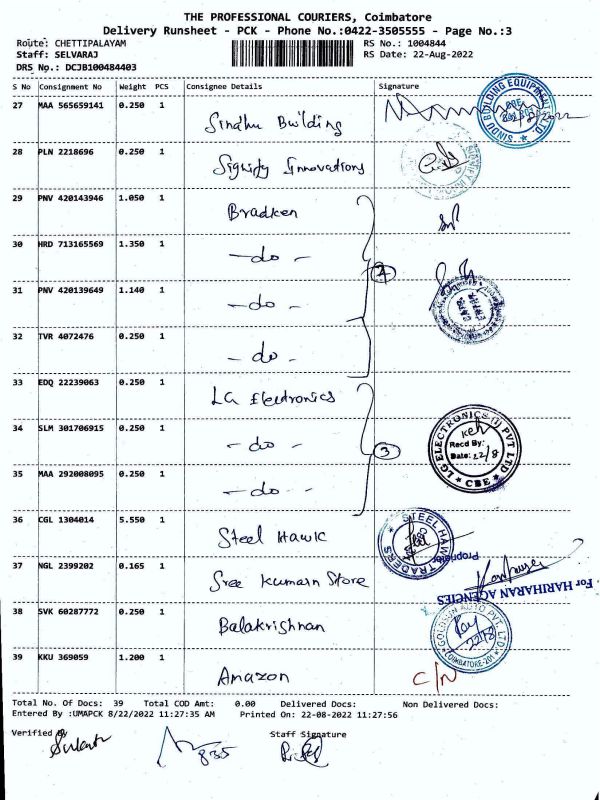 THE PROFESSIONAL COURIERS, Coimbatore
Delivery Runsheet - PCK - Phone No.:0422-3505555 - Page No.:3
Route: CHETTIPALAYAM RS No.: 1004844
Staff: SELVARAJ RS Date: 22-Aug-2022
DRS No.: DCJB100484403
S No Consignment No Weight PCS Consignee Details Signature
27 MAA 565659141 0.250 1 Sindhu Building
SINDU BUILDING EQUIPMENT LTD.
28 PLN 2218696 0.250 1 Signify Innovations
29 PNV 420143946 1.050 1 Bradken
30 HRD 713165569 1.350 1 -do- 4
31 PNV 420139649 1.140 1 -do-
32 TVR 4072476 0.250 1 -do-
33 EDQ 22239063 0.250 1 LG Electronics
34 SLM 301706915 0.250 1 -do- 3
LG ELECTRONICS (I) PVT LTD
Recd By:
Date: 22/8
* CBE *
35 MAA 292008095 0.250 1 -do-
36 CGL 1304014 5.550 1 Steel Hawk
STEEL HAWK TRADERS
37 NGL 2399202 0.165 1 Sree Kumaran Store
Proprietor
For HARIHARAN AGENCIES
38 SVK 60287772 0.250 1 Balakrishnan
GOLDSUN AUTO PVT. LTD.
22/8
COIMBATORE-201
39 KKU 369059 1.200 1 Amazon C/N
Total No. Of Docs: 39 Total COD Amt: 0.00 Delivered Docs: Non Delivered Docs:
Entered By :UMAPCK 8/22/2022 11:27:35 AM Printed On: 22-08-2022 11:27:56
Verified Staff Signature
835